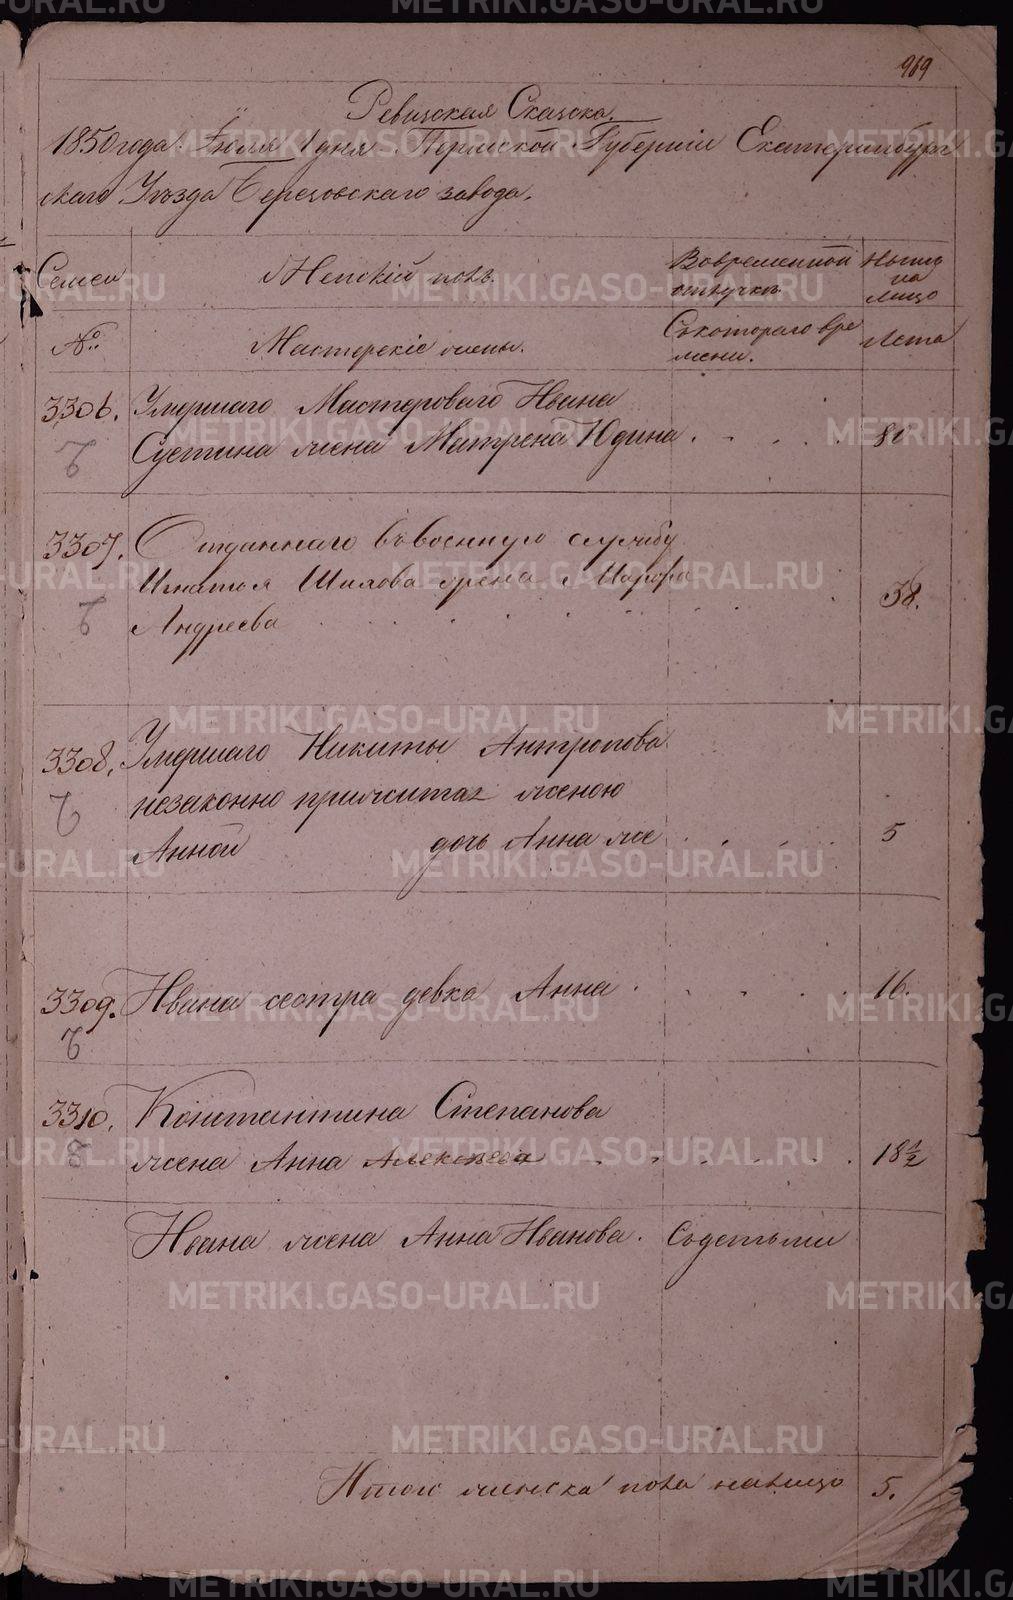 969
Ревизская Сказка.
1850 года Июля 1 дня Пермской Губернiи Екатеринбург
скаго Уѣзда Березовскаго завода.
Семьи Женскiй полъ. Во временной Нынѣ
отлучкѣ на
лицо
№ Мастерскiе жены. Съ котораго вре Лета
мени.
3306. Умершаго Мастероваго Ивана
Суетина жена Матрена Юдина 81
3307. Отданнаго въ военную службу
Игнатья Шилова жена Марфа 38.
Андреева
3308. Умершаго Никиты Антропова
незаконно прижитая женою
Анной дочь Анна же 5
3309. Ивана сестра девка Анна 16.
3310. Константина Степанова
жена Анна Алексѣева 18 1/2
Ивана жена Анна Иванова. Содетьми
Итого женска пола налицо 5.
METRIKI.GASO-URAL.RU